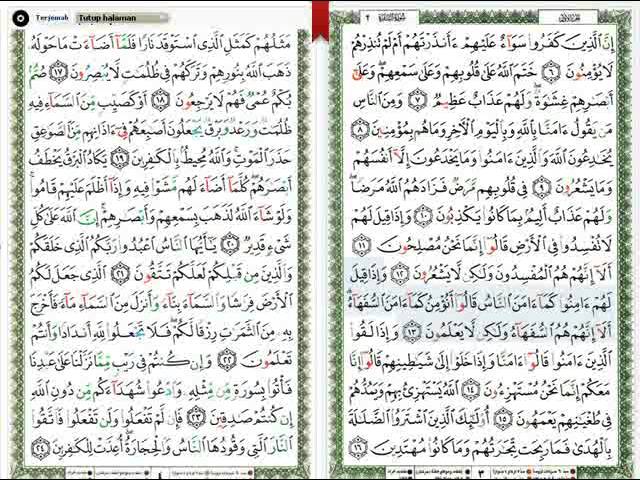 Terjemah
Tutup halaman
إِنَّ ٱلَّذِينَ كَفَرُوا۟ سَوَآءٌ عَلَيْهِمْ ءَأَنذَرْتَهُمْ أَمْ لَمْ تُنذِرْهُمْ
لَا يُؤْمِنُونَ ٦ خَتَمَ ٱللَّهُ عَلَىٰ قُلُوبِهِمْ وَعَلَىٰ سَمْعِهِمْ ۖ وَعَلَىٰٓ
أَبْصَٰرِهِمْ غِشَٰوَةٌ ۖ وَلَهُمْ عَذَابٌ عَظِيمٌ ٧ وَمِنَ ٱلنَّاسِ
مَن يَقُولُ ءَامَنَّا بِٱللَّهِ وَبِٱلْيَوْمِ ٱلْءَاخِرِ وَمَا هُم بِمُؤْمِنِينَ ٨
يُخَٰدِعُونَ ٱللَّهَ وَٱلَّذِينَ ءَامَنُوا۟ وَمَا يَخْدَعُونَ إِلَّآ أَنفُسَهُمْ
وَمَا يَشْعُرُونَ ٩ فِى قُلُوبِهِم مَّرَضٌ فَزَادَهُمُ ٱللَّهُ مَرَضًا ۖ
وَلَهُمْ عَذَابٌ أَلِيمٌۢ بِمَا كَانُوا۟ يَكْذِبُونَ ١٠ وَإِذَا قِيلَ لَهُمْ
لَا تُفْسِدُوا۟ فِى ٱلْأَرْضِ قَالُوٓا۟ إِنَّمَا نَحْنُ مُصْلِحُونَ ١١
أَلَآ إِنَّهُمْ هُمُ ٱلْمُفْسِدُونَ وَلَٰكِن لَّا يَشْعُرُونَ ١٢ وَإِذَا قِيلَ
لَهُمْ ءَامِنُوا۟ كَمَآ ءَامَنَ ٱلنَّاسُ قَالُوٓا۟ أَنُؤْمِنُ كَمَآ ءَامَنَ ٱلسُّفَهَآءُ ۗ
أَلَآ إِنَّهُمْ هُمُ ٱلسُّفَهَآءُ وَلَٰكِن لَّا يَعْلَمُونَ ١٣ وَإِذَا لَقُوا۟
ٱلَّذِينَ ءَامَنُوا۟ قَالُوٓا۟ ءَامَنَّا وَإِذَا خَلَوْا۟ إِلَىٰ شَيَٰطِينِهِمْ قَالُوٓا۟ إِنَّا
مَعَكُمْ إِنَّمَا نَحْنُ مُسْتَهْزِءُونَ ١٤ ٱللَّهُ يَسْتَهْزِئُ بِهِمْ وَيَمُدُّهُمْ
فِى طُغْيَٰنِهِمْ يَعْمَهُونَ ١٥ أُو۟لَٰٓئِكَ ٱلَّذِينَ ٱشْتَرَوُا۟ ٱلضَّلَٰلَةَ
بِٱلْهُدَىٰ فَمَا رَبِحَت تِّجَٰرَتُهُمْ وَمَا كَانُوا۟ مُهْتَدِينَ ١٦
٣
مَثَلُهُمْ كَمَثَلِ ٱلَّذِى ٱسْتَوْقَدَ نَارًا فَلَمَّآ أَضَآءَتْ مَا حَوْلَهُۥ
ذَهَبَ ٱللَّهُ بِنُورِهِمْ وَتَرَكَهُمْ فِى ظُلُمَٰتٍ لَّا يُبْصِرُونَ ١٧ صُمٌّۢ
بُكْمٌ عُمْىٌ فَهُمْ لَا يَرْجِعُونَ ١٨ أَوْ كَصَيِّبٍ مِّنَ ٱلسَّمَآءِ فِيهِ
ظُلُمَٰتٌ وَرَعْدٌ وَبَرْقٌ يَجْعَلُونَ أَصَٰبِعَهُمْ فِىٓ ءَاذَانِهِم مِّنَ ٱلصَّوَٰعِقِ
حَذَرَ ٱلْمَوْتِ ۚ وَٱللَّهُ مُحِيطٌۢ بِٱلْكَٰفِرِينَ ١٩ يَكَادُ ٱلْبَرْقُ يَخْطَفُ
أَبْصَٰرَهُمْ ۖ كُلَّمَآ أَضَآءَ لَهُم مَّشَوْا۟ فِيهِ وَإِذَآ أَظْلَمَ عَلَيْهِمْ قَامُوا۟ ۚ
وَلَوْ شَآءَ ٱللَّهُ لَذَهَبَ بِسَمْعِهِمْ وَأَبْصَٰرِهِمْ ۚ إِنَّ ٱللَّهَ عَلَىٰ كُلِّ
شَىْءٍ قَدِيرٌ ٢٠ يَٰٓأَيُّهَا ٱلنَّاسُ ٱعْبُدُوا۟ رَبَّكُمُ ٱلَّذِى خَلَقَكُمْ
وَٱلَّذِينَ مِن قَبْلِكُمْ لَعَلَّكُمْ تَتَّقُونَ ٢١ ٱلَّذِى جَعَلَ لَكُمُ
ٱلْأَرْضَ فِرَٰشًا وَٱلسَّمَآءَ بِنَآءً وَأَنزَلَ مِنَ ٱلسَّمَآءِ مَآءً فَأَخْرَجَ
بِهِۦ مِنَ ٱلثَّمَرَٰتِ رِزْقًا لَّكُمْ ۖ فَلَا تَجْعَلُوا۟ لِلَّهِ أَندَادًا وَأَنتُمْ
تَعْلَمُونَ ٢٢ وَإِن كُنتُمْ فِى رَيْبٍ مِّمَّا نَزَّلْنَا عَلَىٰ عَبْدِنَا
فَأْتُوا۟ بِسُورَةٍ مِّن مِّثْلِهِۦ وَٱدْعُوا۟ شُهَدَآءَكُم مِّن دُونِ ٱللَّهِ
إِن كُنتُمْ صَٰدِقِينَ ٢٣ فَإِن لَّمْ تَفْعَلُوا۟ وَلَن تَفْعَلُوا۟ فَٱتَّقُوا۟
ٱلنَّارَ ٱلَّتِى وَقُودُهَا ٱلنَّاسُ وَٱلْحِجَارَةُ ۖ أُعِدَّتْ لِلْكَٰفِرِينَ ٢٤
٤